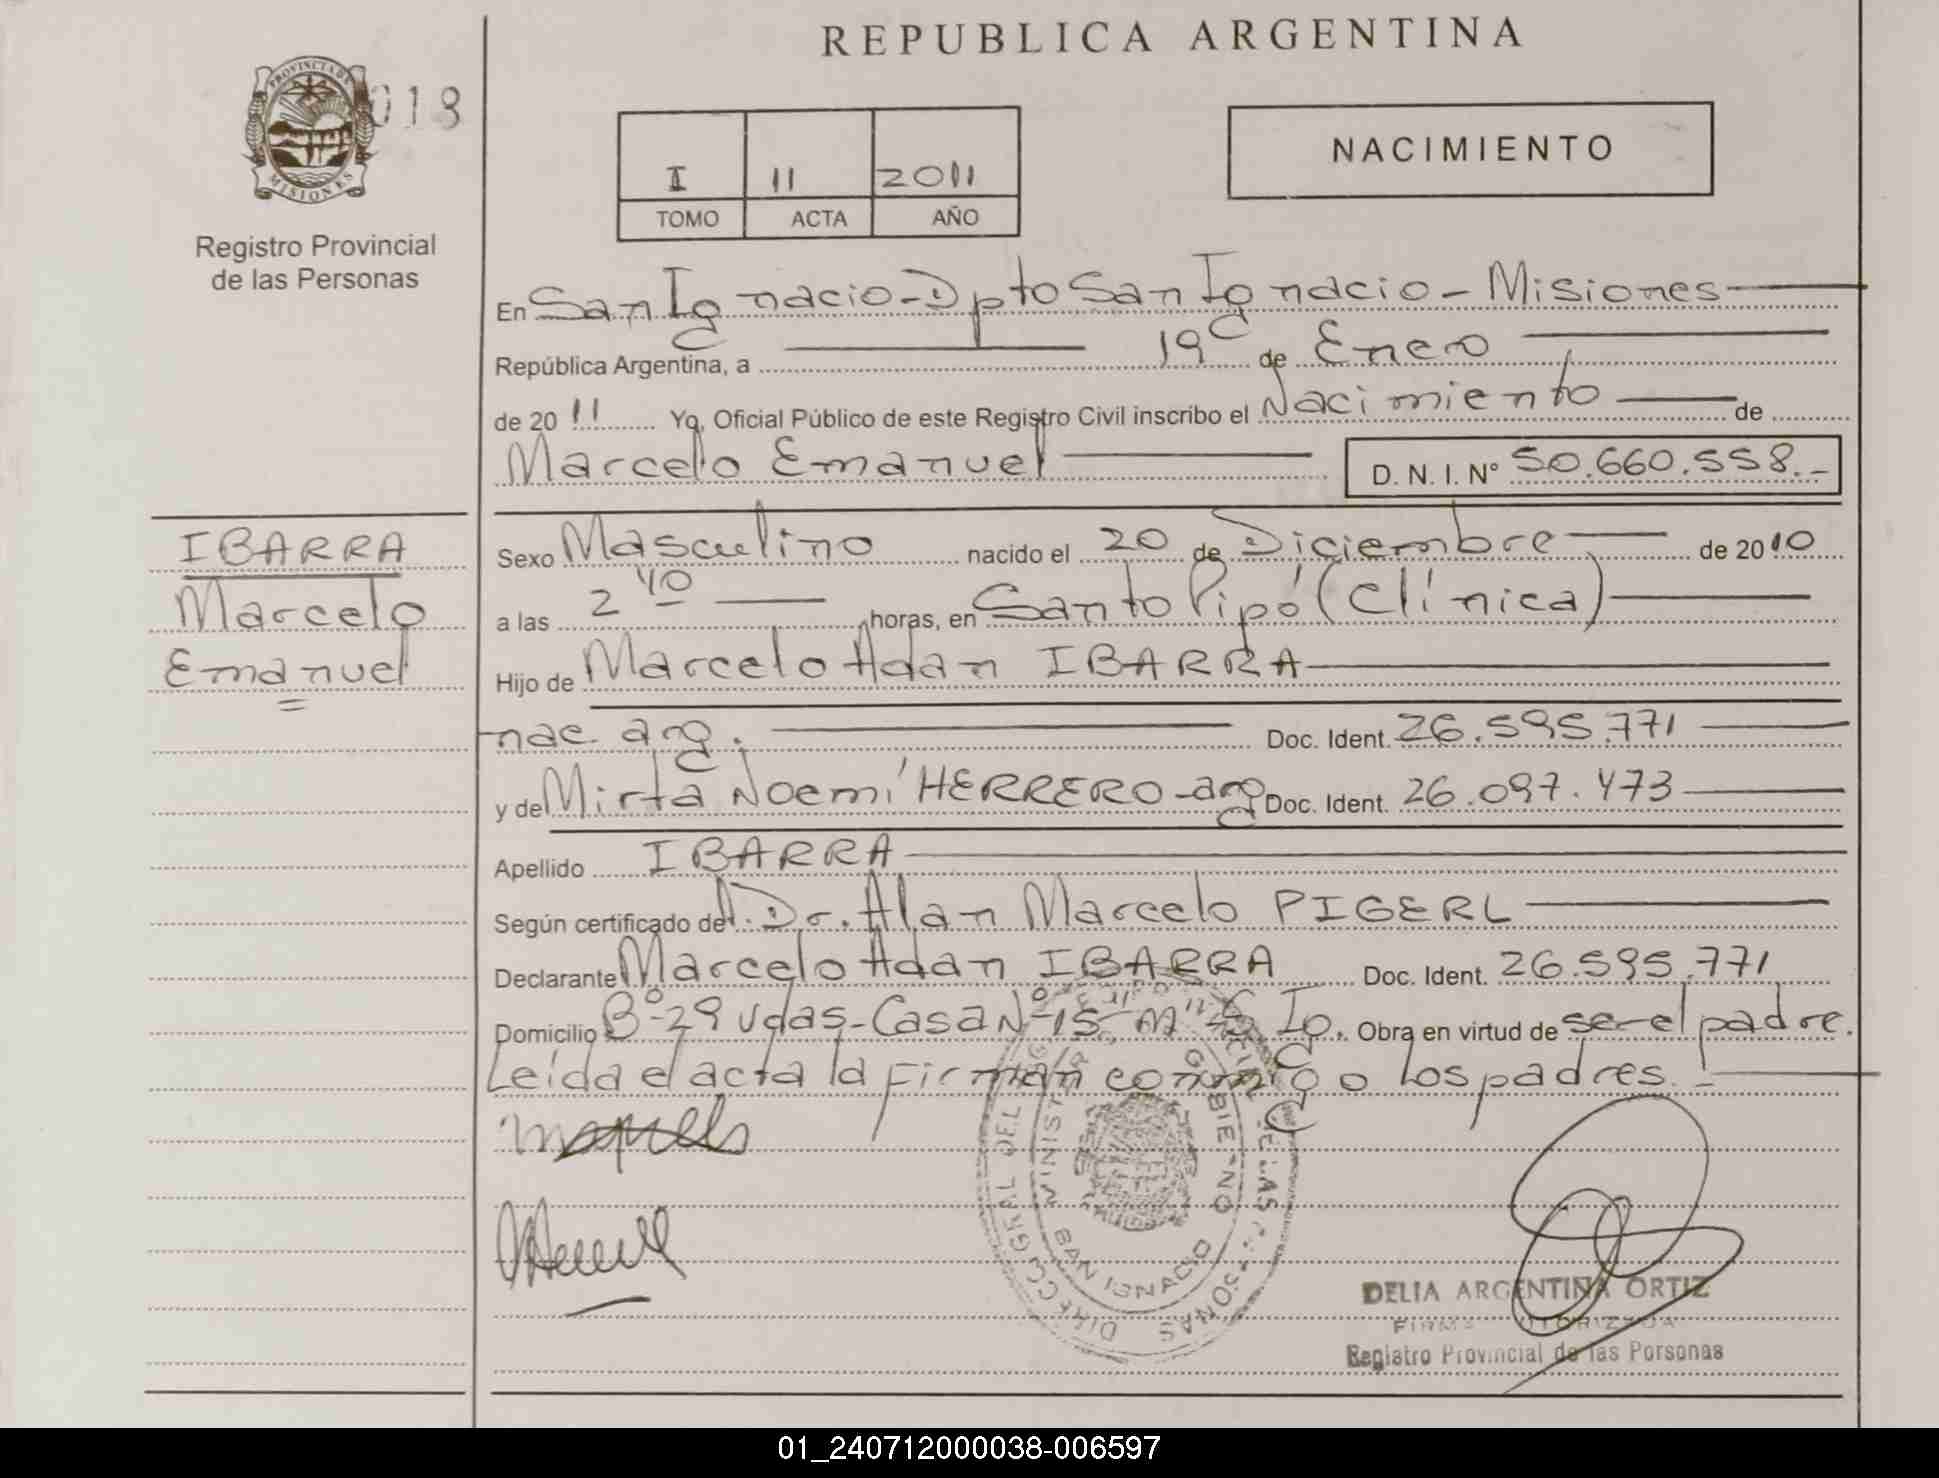 REPUBLICA ARGENTINA
PROVINCIA DE
MISIONES
018
Registro Provincial
de las Personas
I 11 2011
TOMO ACTA AÑO
NACIMIENTO
En San Ignacio - Dpto San Ignacio - Misiones
República Argentina, a 19 de Enero
de 2011 Yo, Oficial Público de este Registro Civil inscribo el Nacimiento de
Marcelo Emanuel D. N. I. N° 50.660.558.-
IBARRA
Marcelo
Emanuel
Sexo Masculino nacido el 20 de Diciembre de 2010
a las 2 40 horas, en Santo Pipó (Clínica)
Hijo de Marcelo Adan IBARRA
nac. arg. Doc. Ident. 26.595.771
y de Mirta Noemí HERRERO - arg Doc. Ident. 26.097.473
Apellido IBARRA
Según certificado del Dr. Alan Marcelo PIGERL
Declarante Marcelo Adan IBARRA Doc. Ident. 26.595.771
Domicilio B° 29 vdas - Casa N° 15 - M" S. Ig. Obra en virtud de ser el padre.
Leída el acta la firman conmigo los padres.
DIRECC GRAL DEL
MINISTER GOBIERNO
SAN IGNACIO
DELIA ARGENTINA ORTIZ
FIRMA AUTORIZADA
Registro Provincial de las Personas
01_240712000038-006597